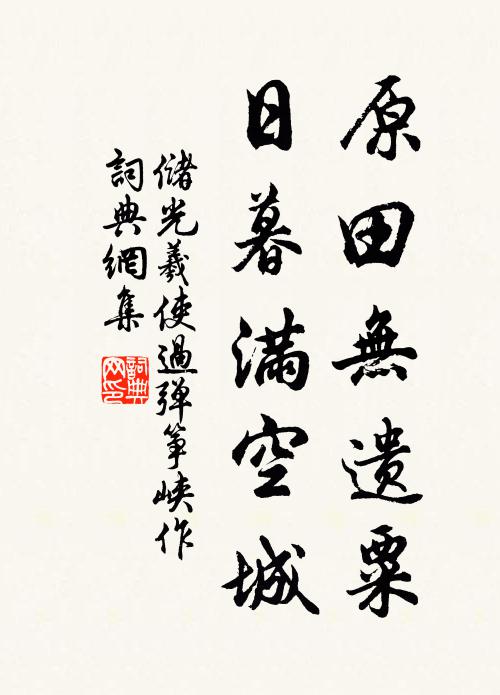 原田無遺粟
日暮滿空城
儲光羲使過彈箏峽作
詞典網集
詞典網印